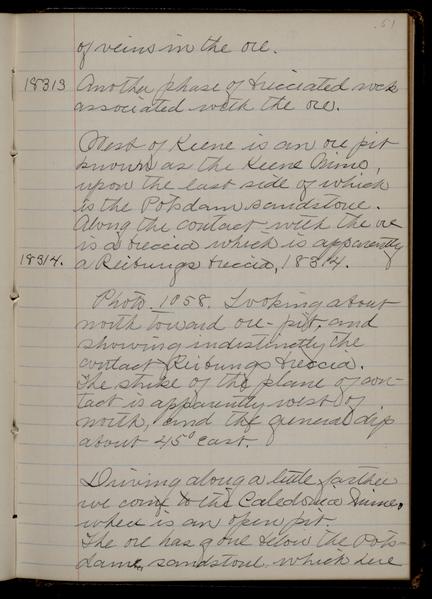 51
of veins in the ore.
18313 Another phase of brecciated rock
associated with the ore.
West of Keene is an ore pit
known as the Keene Mine,
upon the east side of which
is the Potsdam sandstone.
Along the contact with the ore
is a breccia which is apparently
18314. a Reibungs breccia, 18314.
Photo. 1058. Looking about
north toward ore-pit, and
showing indistinctly the
contact Reibungs breccia.
The strike of the plane of con-
tact is apparently west of
north, and the general dip
about 45° east.
Driving along a little farther
we come to the Caledonia Mine,
which is an open pit.
The ore has gone below the Pots-
dam sandstone, which here